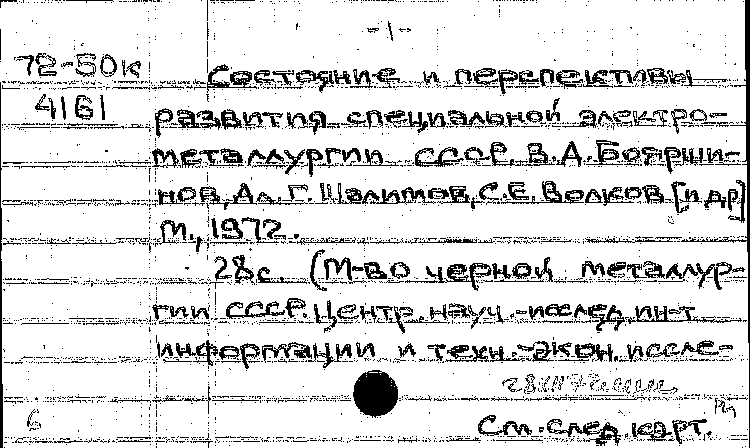 -1-
72-50к Состояние и перспективы
4161 развития специальной электро-
металлургии СССР. В.А.Боярши-
нов, Ал. Г. Шалимов, С.Е. Волков [и др]
М., 1972.
28с. (М-во черной металлур-
гии СССР. Центр. науч.-исслед. ин-т
информации и техн.-экон. иссле-
См. след. карт.
6